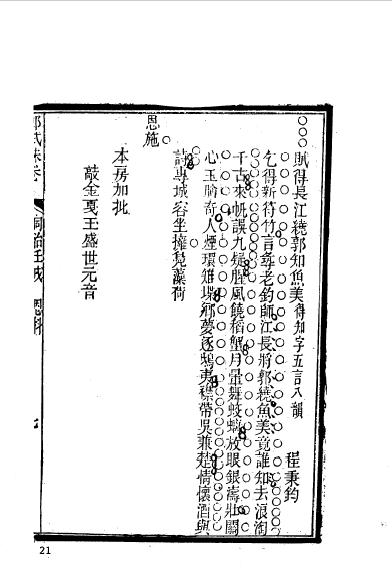 賦得長江繞郭知魚美 得知字五言八韻
程秉鈞
乞得新符竹言尋老釣師江長將郭繞魚美竟誰知去浪淘
千古來帆誤九疑腥風饒稻蟹月暈舞蛟螭放眼銀濤壯關
心玉膾奇人煙環雉堞鄉夢逐鴟夷襟帶吳兼楚情懷酒與
詩專城容坐擁藻荷
恩施
本房加批
敲金戛玉盛世元音
同治壬戌 恩科
七
21